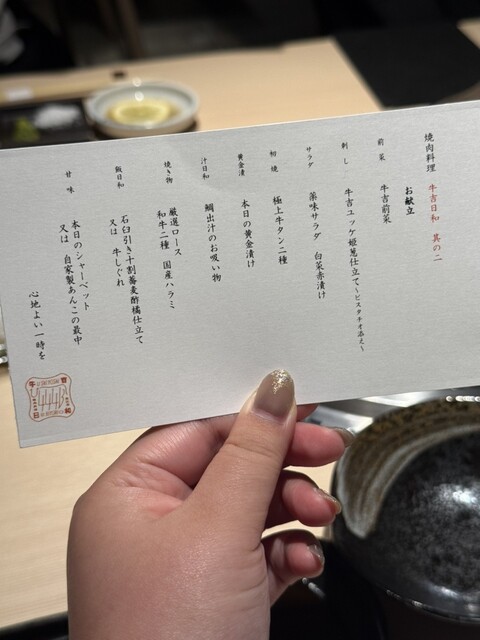 焼肉料理　牛吉日和　其の二
お献立
前菜
牛吉前菜
刺し
牛吉ユッケ姫葱仕立て〜ピスタチオ添え〜
サラダ
薬味サラダ　白菜赤漬け
初焼
極上牛タン二種
黄金漬
本日の黄金漬け
汁日和
鯛出汁のお吸い物
焼き物
厳選ロース
和牛二種　国産ハラミ
飯日和
石臼引き十割蕎麦酢橘仕立て
又は　牛しぐれ
甘味
本日のシャーベット
又は　自家製あんこの最中
心地よい一時を
牛吉
日和